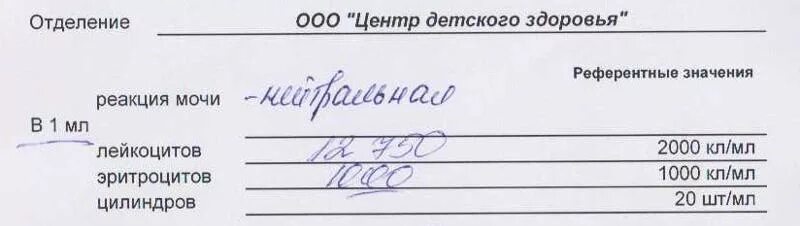 Отделение ООО "Центр детского здоровья"
Референтные значения
реакция мочи - нейтральная
В 1 мл
лейкоцитов 12 750 2000 кл/мл
эритроцитов 1000 1000 кл/мл
цилиндров 20 шт/мл